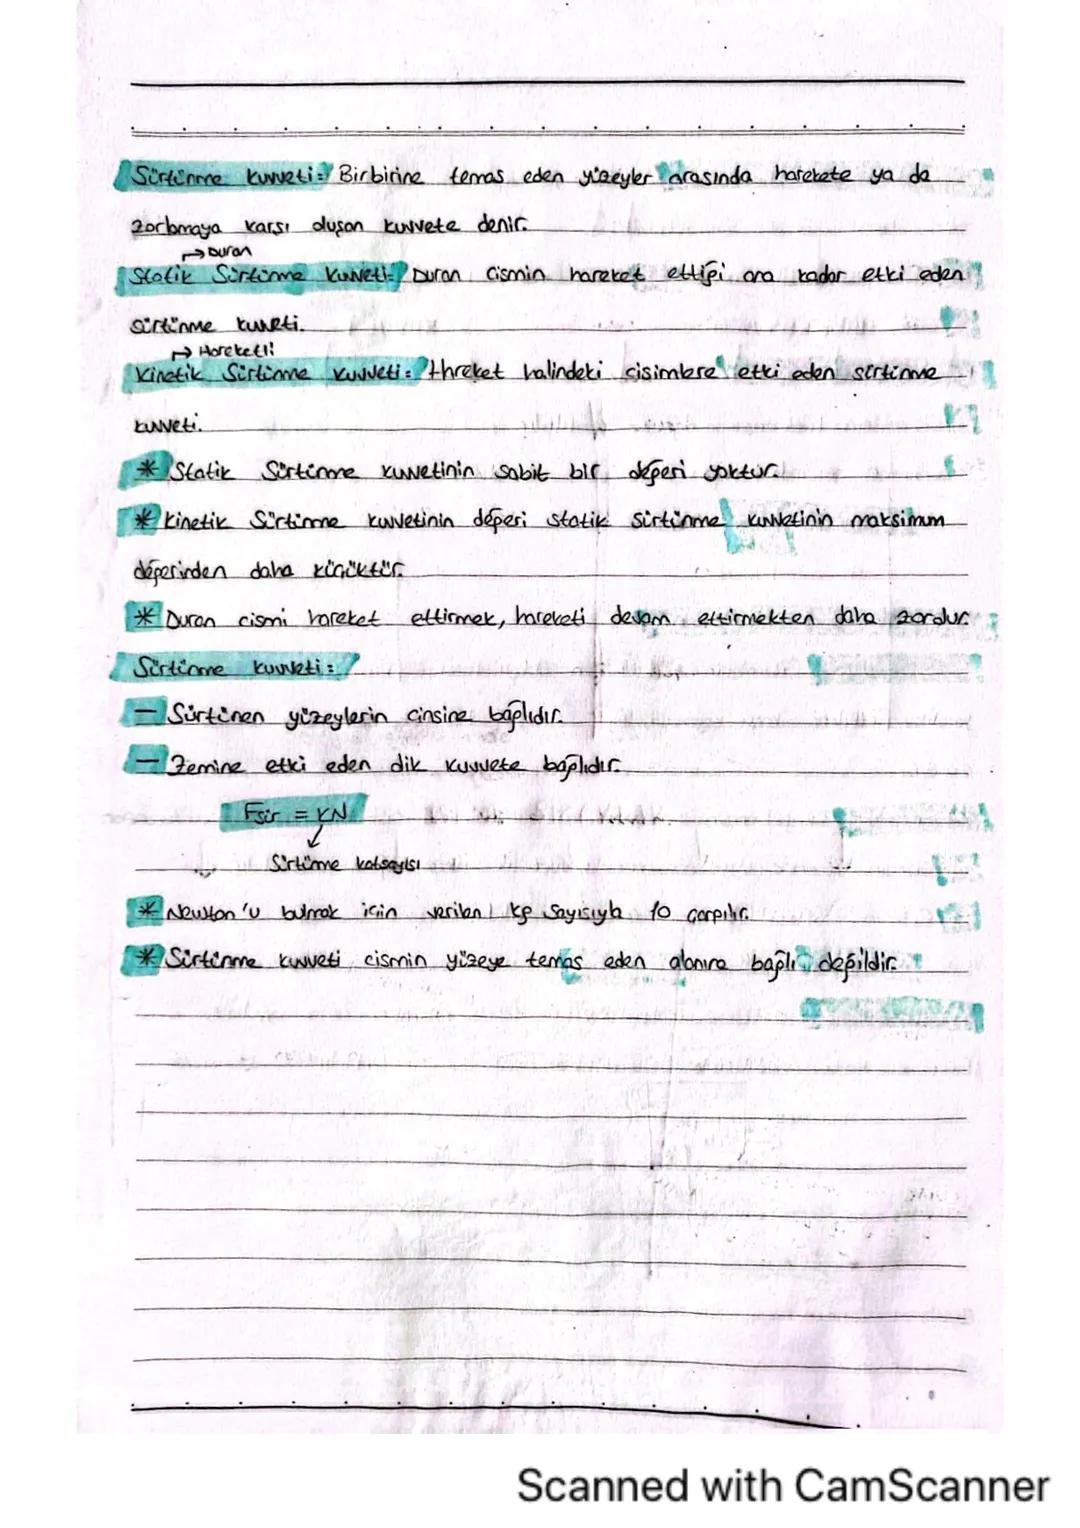 Sürtünme kuvveti= Birbirine temas eden yüzeyler arasında harekete ya da
zorlamaya karşı oluşan kuvvete denir.
→ Duran
Statik Sürtünme Kuvveti= Duran cismin hareket ettiği ana kadar etki eden
sürtünme kuvveti.
→ Hareketli
Kinetik Sürtünme kuvveti= Hareket halindeki cisimlere etki eden sürtünme
kuvveti.
* Statik Sürtünme kuvvetinin sabit bir değeri yoktur.
* Kinetik Sürtünme kuvvetinin değeri statik sürtünme kuvvetinin maksimum
değerinden daha küçüktür.
* Duran cismi hareket ettirmek, hareketi devam ettirmekten daha zordur.
Sürtünme kuvveti=
— Sürtünen yüzeylerin cinsine bağlıdır.
— Zemine etki eden dik kuvvete bağlıdır.
Fsür = kN
Sürtünme katsayısı
* Newton'u bulmak için verilen kg sayısıyla 10 çarpılır.
* Sürtünme kuvveti cismin yüzeye temas eden alanına bağlı değildir.
Scanned with CamScanner